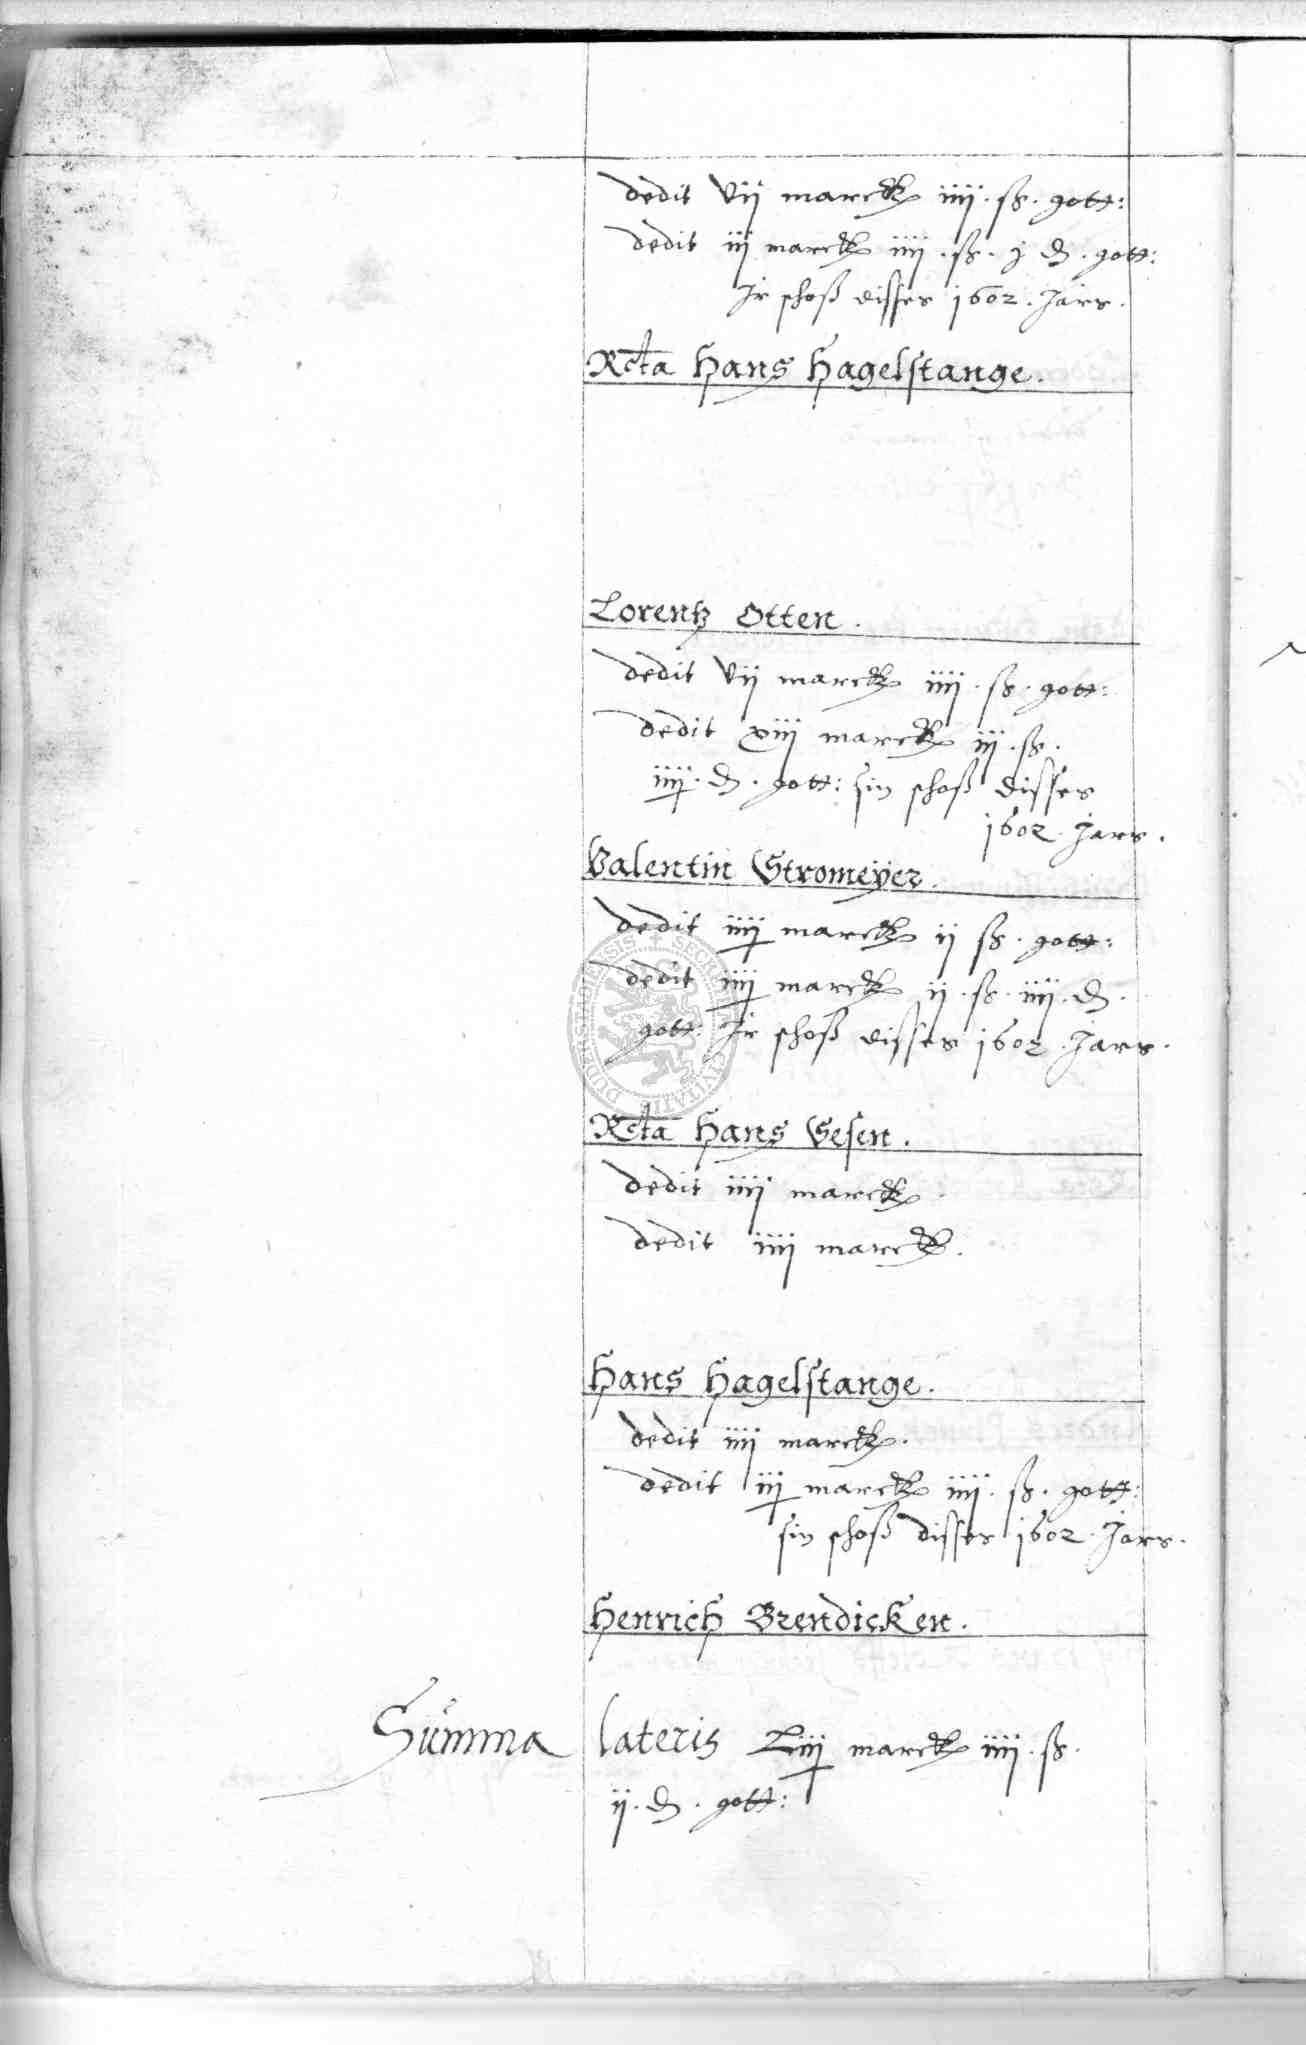 dedit vij marck iiij. ß. gott:
dedit iij marck iiij. ß. j ₰. gott:
Ir schoß disses 1602. Jars.
Rcta Hans Hagelstange.
Lorentz Otten.
dedit vij marck iiij. ß. gott:
dedit xiij marck iij. ß.
iiij. ₰. gott: sin schoß disses
1602. Jars.
Valentin Stromeÿer.
dedit iiij marck ij ß. gott:
dedit iiij marck ij. ß. iiij. ₰.
gott: Ir schoß disses 1602. Jars.
Rcta Hans Gesen.
dedit iiij marck.
dedit iiij marck.
Hans Hagelstange.
dedit iiij marck.
dedit iij marck iiij. ß. gott:
sin schoß disses 1602. Jars.
Henrich Brendicken.
Summa lateris Liij marck iiij. ß.
ij. ₰. gott:
DUDERSTADIENSIS SECRETUM CIVITATIS